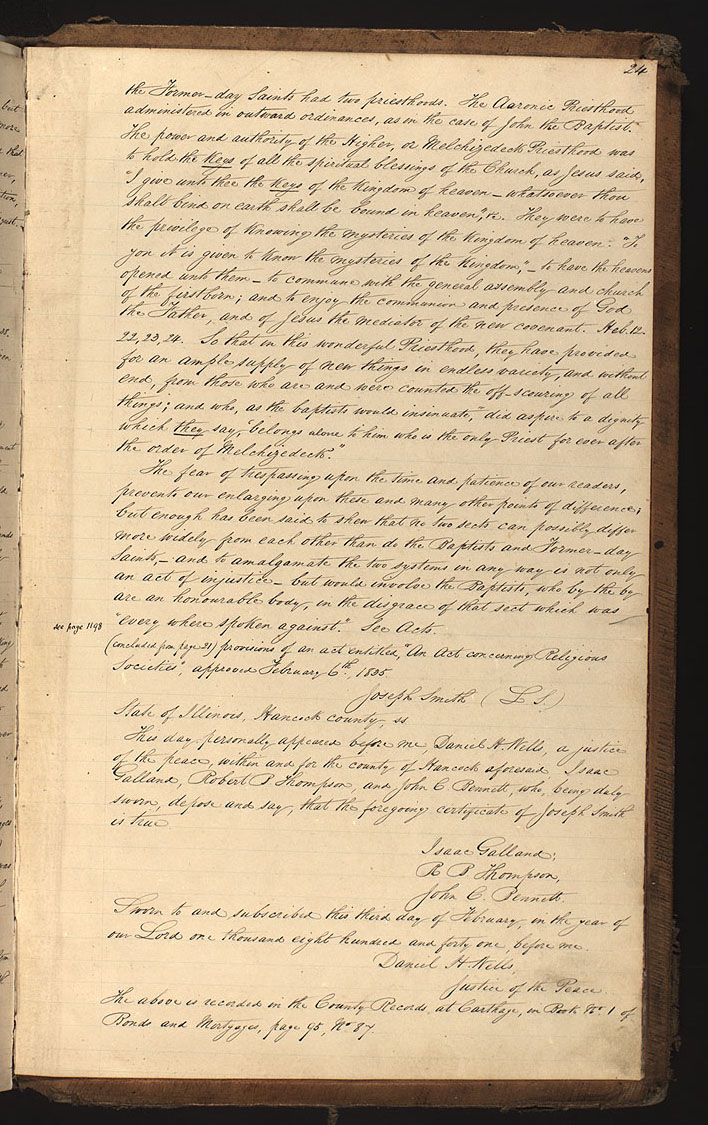 24
the Former-day Saints had two priesthoods. The Aaronic Priesthood
administered in outward ordinances, as in the case of John the Baptist."
The power and authority of the Higher, or Melchizedeck Priesthood was
to hold the Keys of all the spiritual blessings of the Church, as Jesus said,
"I give unto thee the Keys of the Kingdom of heaven — whatsoever thou
shall bind on earth shall be bound in heaven", &c. They were to have
the privilege of Knowing the mysteries of the Kingdom of heaven. "To
you it is given to Know the mysteries of the Kingdom", — to have the heavens
opened unto them — to commune with the general assembly and church
of the firstborn; and to enjoy the communion and presence of God
the Father, and of Jesus the mediator of the new covenant. Heb. 12-
22, 23, 24. So that in this wonderful Priesthood, they have provided
for an ample supply of new things in endless variety, and without
end, from those who are and were counted the off-scouring of all
things; and who, as the baptists would insinuate, "did aspire to a dignity
which they say, "belongs alone to him who is the only Priest for ever after
the order of Melchizedeck."
The fear of trespassing upon the time and patience of our readers,
prevents our enlarging upon these and many other points of difference;
but enough has been said to shew that no two sects can possibly differ
more widely from each other than do the Baptists and Former-day
Saints, — and to amalgamate the two systems in any way is not only
an act of injustice — but would involve the Baptists, who by the by
are an honourable body, in the disgrace of that sect which was
"every where spoken against." See Acts.
see page 1198
(concluded from page 21) provisions of an act entitled, "An Act concerning Religious
Societies", approved February 6th, 1835.
Joseph Smith (L S.)
State of Illinois, Hancock county, ss
This day personally appeared before me, Daniel H. Wells, a justice
of the peace, within and for the county of Hancock aforesaid, Isaac
Galland, Robert B Thompson, and John C. Bennett, who, being duly
sworn, depose and say, that the foregoing certificate of Joseph Smith
is true
Isaac Galland;
R B Thompson,
John C. Bennett.
Sworn to and subscribed this third day of February, in the year of
our Lord one thousand eight hundred and forty one, before me
Daniel H. Wells,
Justice of the Peace
The above is recorded in the County Records, at Carthage, in Book No. 1 of
Bonds and Mortgages, page 95, No 87.